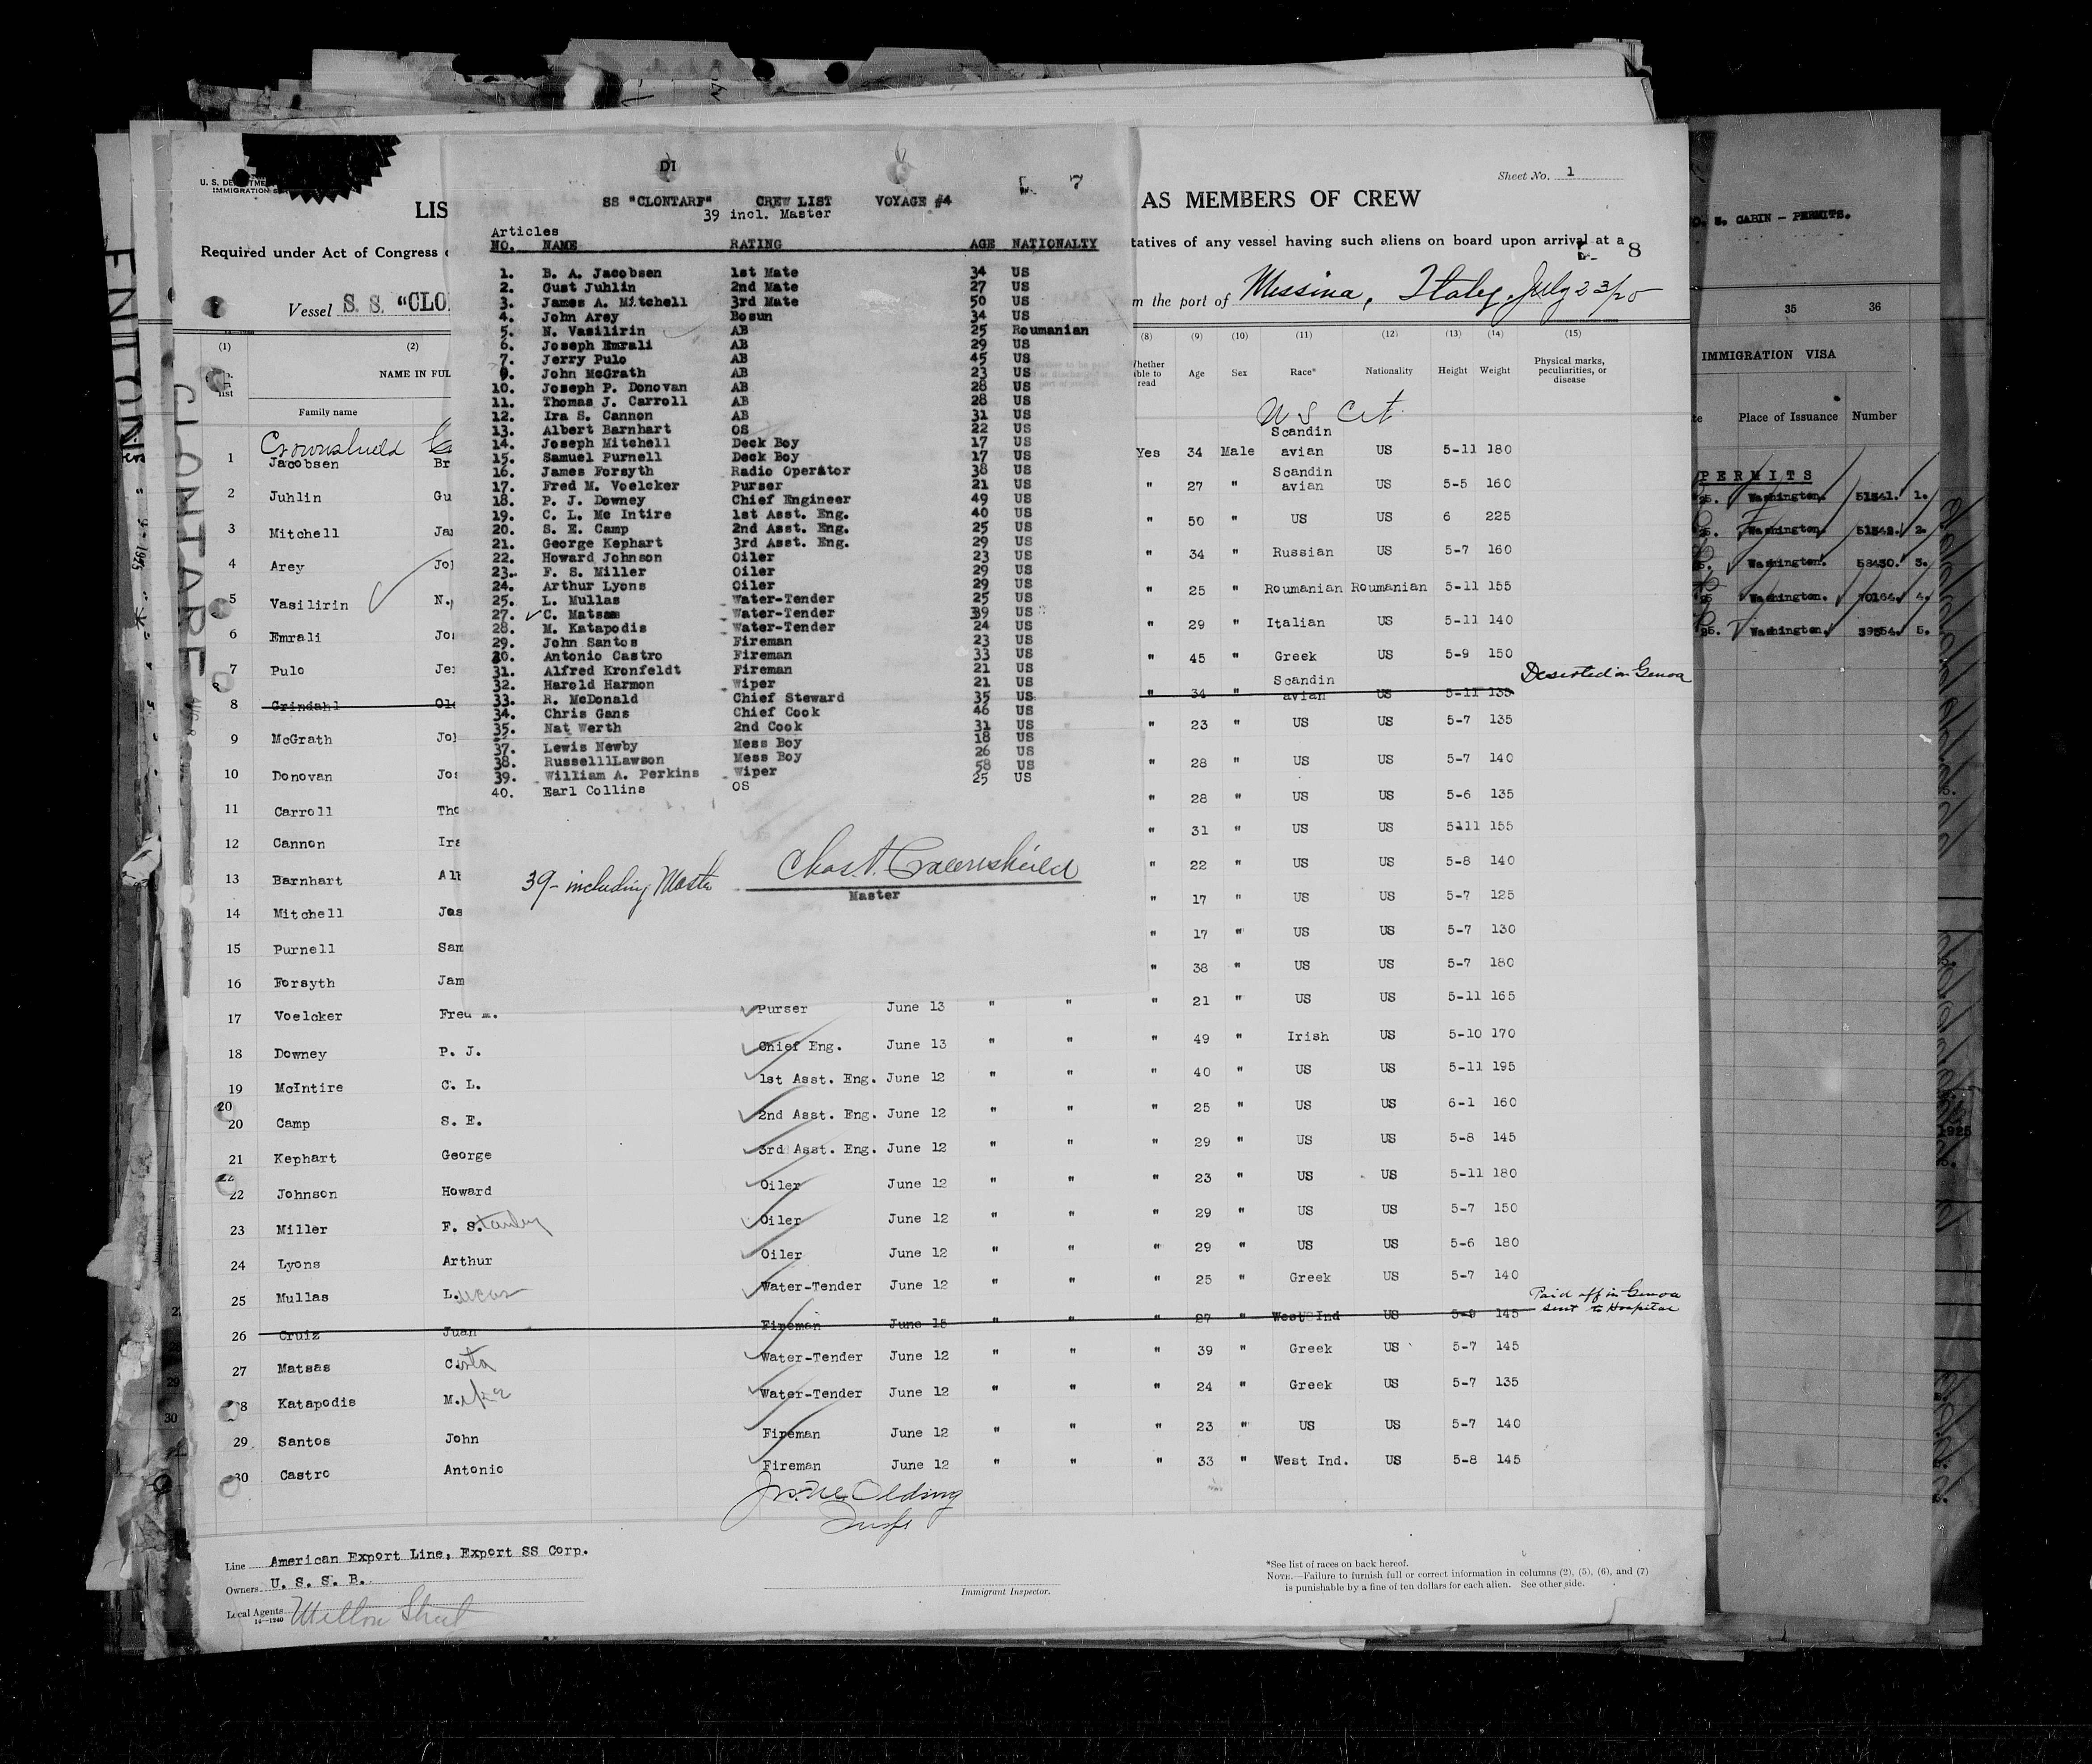 DI
7
SS "CLONTARF" CREW LIST VOYAGE #4
39 incl. Master
Articles
NO. NAME RATING AGE NATIONALTY
1. B. A. Jacobsen 1st Mate 34 US
2. Gust Juhlin 2nd Mate 27 US
3. James A. Mitchell 3rd Mate 50 US
4. John Arey Bosun 34 US
5. N. Vasilirin AB 25 Roumanian
6. Joseph Emrali AB 29 US
7. Jerry Pulo AB 45 US
9. John McGrath AB 23 US
10. Joseph P. Donovan AB 28 US
11. Thomas J. Carroll AB 28 US
12. Ira S. Cannon AB 31 US
13. Albert Barnhart OS 22 US
14. Joseph Mitchell Deck Boy 17 US
15. Samuel Purnell Deck Boy 17 US
16. James Forsyth Radio Operator 38 US
17. Fred M. Voelcker Purser 21 US
18. P. J. Downey Chief Engineer 49 US
19. C. L. Mc Intire 1st Asst. Eng. 40 US
20. S. E. Camp 2nd Asst. Eng. 25 US
21. George Kephart 3rd Asst. Eng. 29 US
22. Howard Johnson Oiler 23 US
23. F. S. Miller Oiler 29 US
24. Arthur Lyons Oiler 29 US
25. L. Mullas Water-Tender 25 US
27. C. Matsas Water-Tender 39 US
28. M. Katapodis Water-Tender 24 US
29. John Santos Fireman 23 US
30. Antonio Castro Fireman 33 US
31. Alfred Kronfeldt Fireman 21 US
32. Harold Harmon Wiper 21 US
33. R. McDonald Chief Steward 35 US
34. Chris Gans Chief Cook 46 US
35. Nat Werth 2nd Cook 31 US
18 US
37. Lewis Newby Mess Boy 26 US
38. RusselllLawson Mess Boy 58 US
39. William A. Perkins Wiper 25 US
40. Earl Collins OS
39 - including Master
Master
U. S. DE
IMMIGRATION
LIS
AS MEMBERS OF CREW
Sheet No. 1
Required under Act of Congress
tatives of any vessel having such aliens on board upon arrival at a
8
Vessel S. S. "CLO
m the port of Messina, Italy, July 23/25
(1) (2) (8) (9) (10) (11) (12) (13) (14) (15)
NAME IN FUL
Family name
read Age Sex Race* Nationality Height Weight Physical marks, peculiarities, or disease
Crowninshield
U S Cit.
1 Jacobsen Br Yes 34 Male Scandin avian US 5-11 180
2 Juhlin Gu " 27 " Scandin avian US 5-5 160
3 Mitchell Ja " 50 " US US 6 225
4 Arey Jo " 34 " Russian US 5-7 160
5 Vasilirin N. " 25 " Roumanian Roumanian 5-11 155
6 Emrali Jo " 29 " Italian US 5-11 140
7 Pulo Je " 45 " Greek US 5-9 150
8 Grindahl Ol " 34 " Scandin avian US 5-11 135 Deserted in Genoa
9 McGrath Jo " 23 " US US 5-7 135
10 Donovan Jos " 28 " US US 5-7 140
11 Carroll Tho " 28 " US US 5-6 135
12 Cannon Ira " 31 " US US 5111 155
13 Barnhart Alb " 22 " US US 5-8 140
14 Mitchell Jos " 17 " US US 5-7 125
15 Purnell Sam " 17 " US US 5-7 130
16 Forsyth Jam " 38 " US US 5-7 180
17 Voelcker Fred M. Purser June 13 " " " 21 " US US 5-11 165
18 Downey P. J. Chief Eng. June 13 " " " 49 " Irish US 5-10 170
19 McIntire C. L. 1st Asst. Eng. June 12 " " " 40 " US US 5-11 195
20 Camp S. E. 2nd Asst. Eng. June 12 " " " 25 " US US 6-1 160
21 Kephart George 3rd Asst. Eng. June 12 " " " 29 " US US 5-8 145
22 Johnson Howard Oiler June 12 " " " 23 " US US 5-11 180
23 Miller F. Stanley Oiler June 12 " " " 29 " US US 5-7 150
24 Lyons Arthur Oiler June 12 " " " 29 " US US 5-6 180
25 Mullas L.ucas Water-Tender June 12 " " " 25 " Greek US 5-7 140
26 Cruiz Juan Fireman June 15 " " " 27 " West Ind US 5-9 145 Paid off in Genoa sent to Hospital
27 Matsas Costa Water-Tender June 12 " " " 39 " Greek US 5-7 145
28 Katapodis M.ike Water-Tender June 12 " " " 24 " Greek US 5-7 135
29 Santos John Fireman June 12 " " " 23 " US US 5-7 140
30 Castro Antonio Fireman June 12 " " " 33 " West Ind. US 5-8 145
Line American Export Line, Export SS Corp.
Owners U. S. S. B.
Local Agents
14-1240
Immigrant Inspector.
*See list of races on back hereof.
NOTE.—Failure to furnish full or correct information in columns (2), (5), (6), and (7)
is punishable by a fine of ten dollars for each alien. See other side.
CABIN - PERMITS.
35 36
IMMIGRATION VISA
Place of Issuance Number
PERMITS
Washington. 51541. 1.
Washington. 51542. 2.
Washington. 58430. 3.
Washington. 70164. 4.
Washington. 39554. 5.
CLONTARF